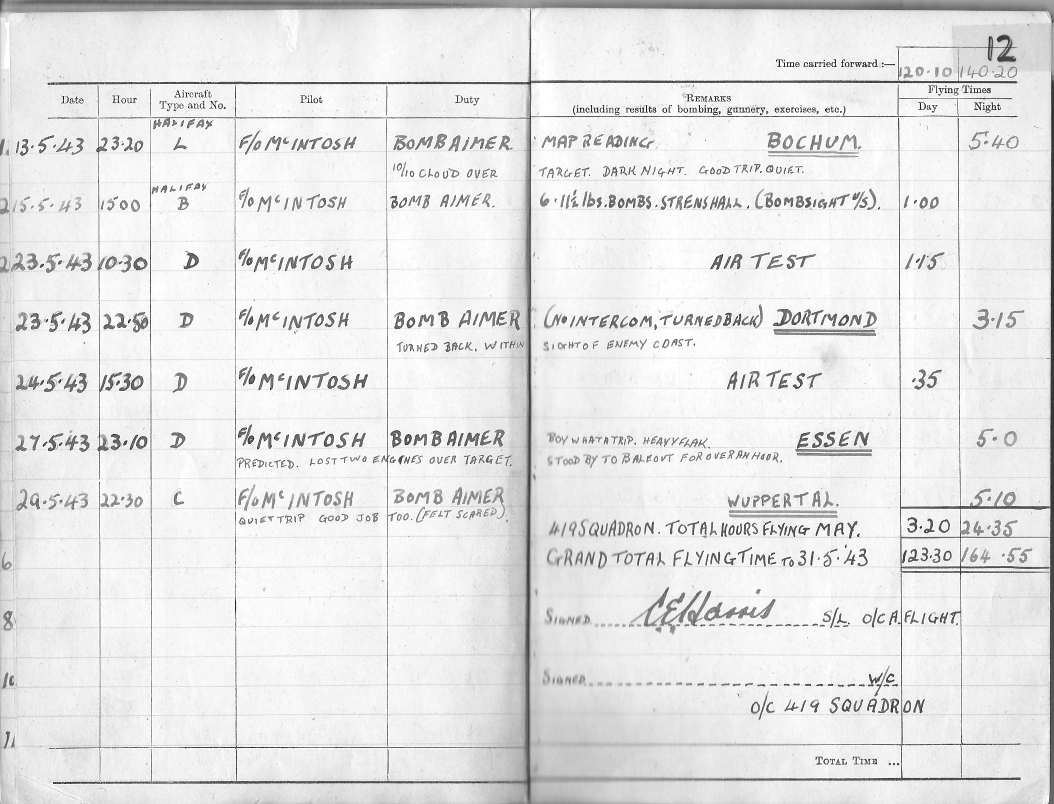 12
Time carried forward :— 120.10 140.20
Date Hour Aircraft Type and No. Pilot Duty REMARKS (including results of bombing, gunnery, exercises, etc.) Flying Times Day Night
HALIFAX
1. 13.5.43 23.20 L F/O McINTOSH BOMB AIMER. MAP READING. BOCHUM. 5.40
10/10 CLOUD OVER TARGET. DARK NIGHT. GOOD TRIP. QUIET.
HALIFAX
2 15.5.43 1500 B F/O McINTOSH BOMB AIMER. 6.11½ lbs. BOMBS. STRENSHALL. (BOMBSIGHT U/S). 1.00
2 23.5.43 10.30 D F/O McINTOSH AIR TEST 1.15
23.5.43 22.50 D F/O McINTOSH BOMB AIMER (NO INTERCOM, TURNED BACK) DORTMOND 3.15
TURNED BACK. WITHIN SIGHT OF ENEMY COAST.
24.5.43 15.30 D F/O McINTOSH AIR TEST .35
27.5.43 23.10 D F/O McINTOSH BOMB AIMER BOY WHAT A TRIP. HEAVY FLAK. ESSEN 5.0
PREDICTED. LOST TWO ENGINES OVER TARGET. STOOD BY TO BALE OUT FOR OVER AN HOUR.
29.5.43 22.30 C F/O McINTOSH BOMB AIMER WUPPERTAL. 5.10
QUIET TRIP GOOD JOB TOO. (FELT SCARED).
419 SQUADRON. TOTAL HOURS FLYING MAY. 3.20 24.35
GRAND TOTAL FLYING TIME TO 31.5.'43 123.30 164.55
6
8 SIGNED C E Harris S/L. O/C A. FLIGHT.
10 SIGNED W/C
O/C 419 SQUADRON
11
TOTAL TIME ...